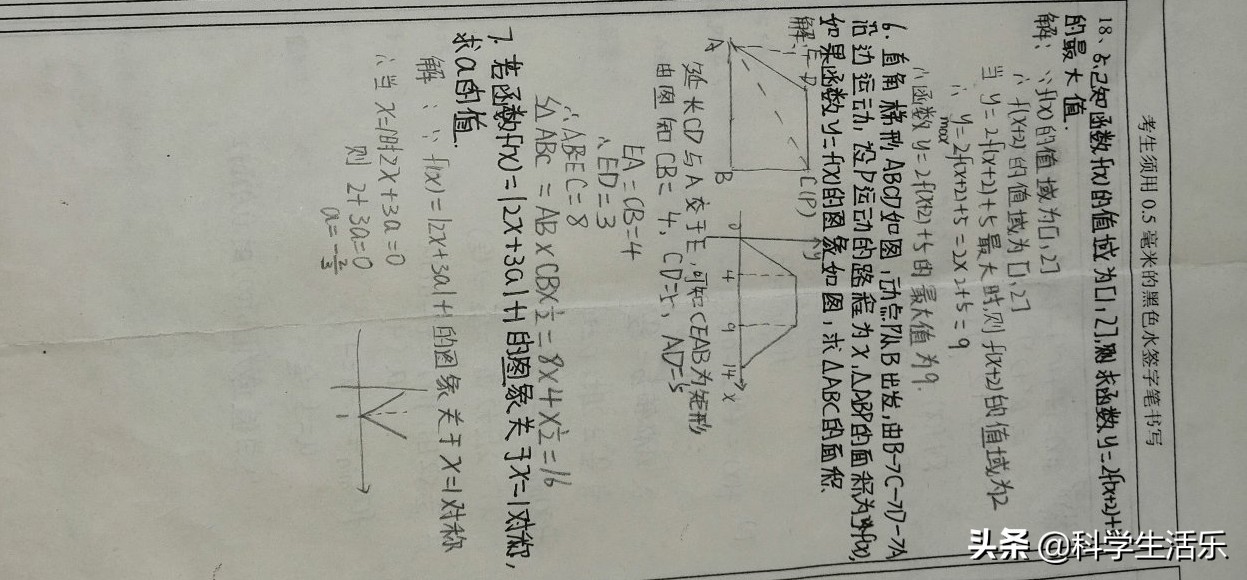 考生须用 0.5 毫米的黑色水签字笔书写
18、5、已知函数f(x)的值域为[1,2],则求函数y=2f(x+2)+5
的最大值.
解: ∵f(x)的值域为[1,2]
∴ f(x+2)的值域为[1,2]
当 y=2f(x+2)+5最大时,则f(x+2)的值域为2
∴ y=2f(x+2)+5=2×2+5=9
max
∴函数y=2f(x+2)+5的最大值为9.
6、直角梯形ABCD如图,动点P从B出发,由B→C→D→A
沿边运动,设P运动的路程为x,△ABP的面积为f(x),
如果函数y=f(x)的图象如图,求△ABC的面积、
解:
E D C(P)
A B
y
0 4 9 14 x
延长CD与A交于E,可知CEAB为矩形
由图知CB=4, CD=5, AD=5
EA=CB=4
∴ED=3
∴AB=EC=8
S△ABC=AB×CB×½=8×4×½=16
7、若函数f(x)=|2x+3a|+1的图象关于x=1对称,
求a的值.
解: ∵ f(x)=|2x+3a|+1的图象关于x=1对称
∴当x=1时2x+3a=0
则 2+3a=0
a=-2/3
1
头条 @科学生活乐